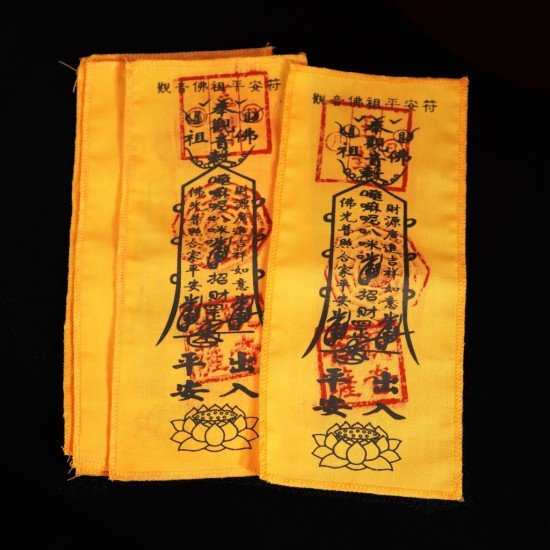 觀音佛祖平安符
佛祖
奉觀音敕
財源廣進吉祥如意
唵嘛呢叭咪吽
招財
佛光普照合家平安
出入
平安
觀音佛祖平安符
佛祖
奉觀音敕
財源廣進吉祥如意
唵嘛呢叭咪吽
招財
佛光普照合家平安
出入
平安